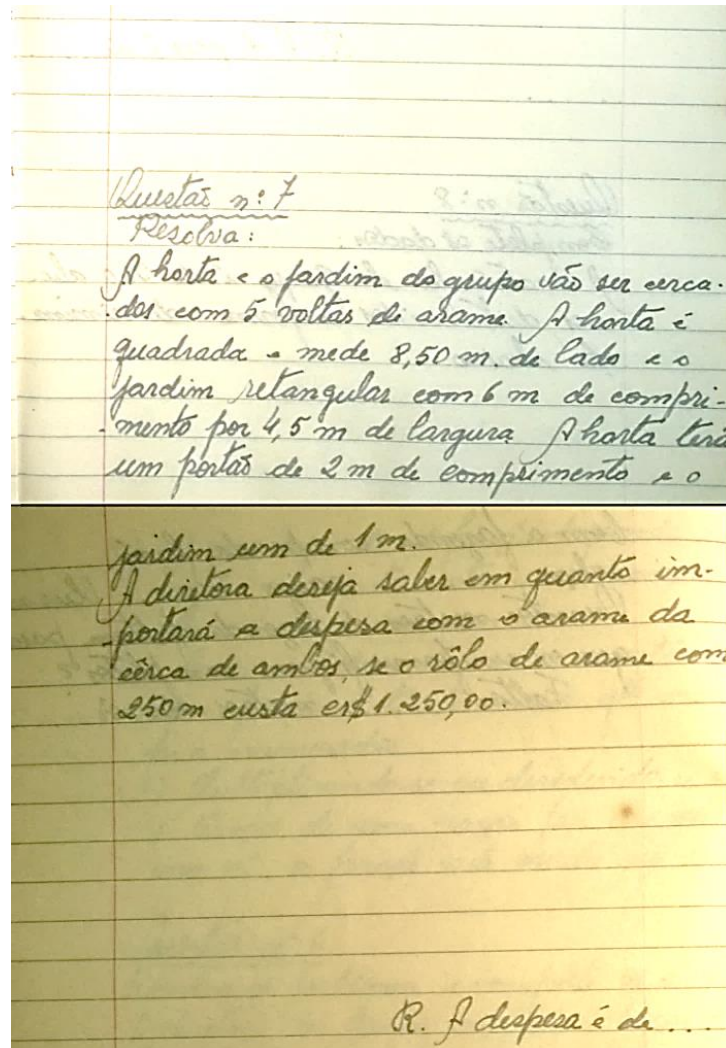 Questão n: 7
Resolva:
A horta e o jardim do grupo vão ser cerca-
dos com 5 voltas de arame. A horta é
quadrada e mede 8,50 m. de lado e o
jardim retangular com 6 m de compri-
mento por 4,5 m de largura. A horta terá
um portão de 2 m de comprimento e o
jardim um de 1 m.
A diretora deseja saber em quanto im-
portará a despesa com o arame da
cêrca de ambos, se o rôlo de arame com
250 m custa cr$ 1.250,00.
R. A despesa é de ....